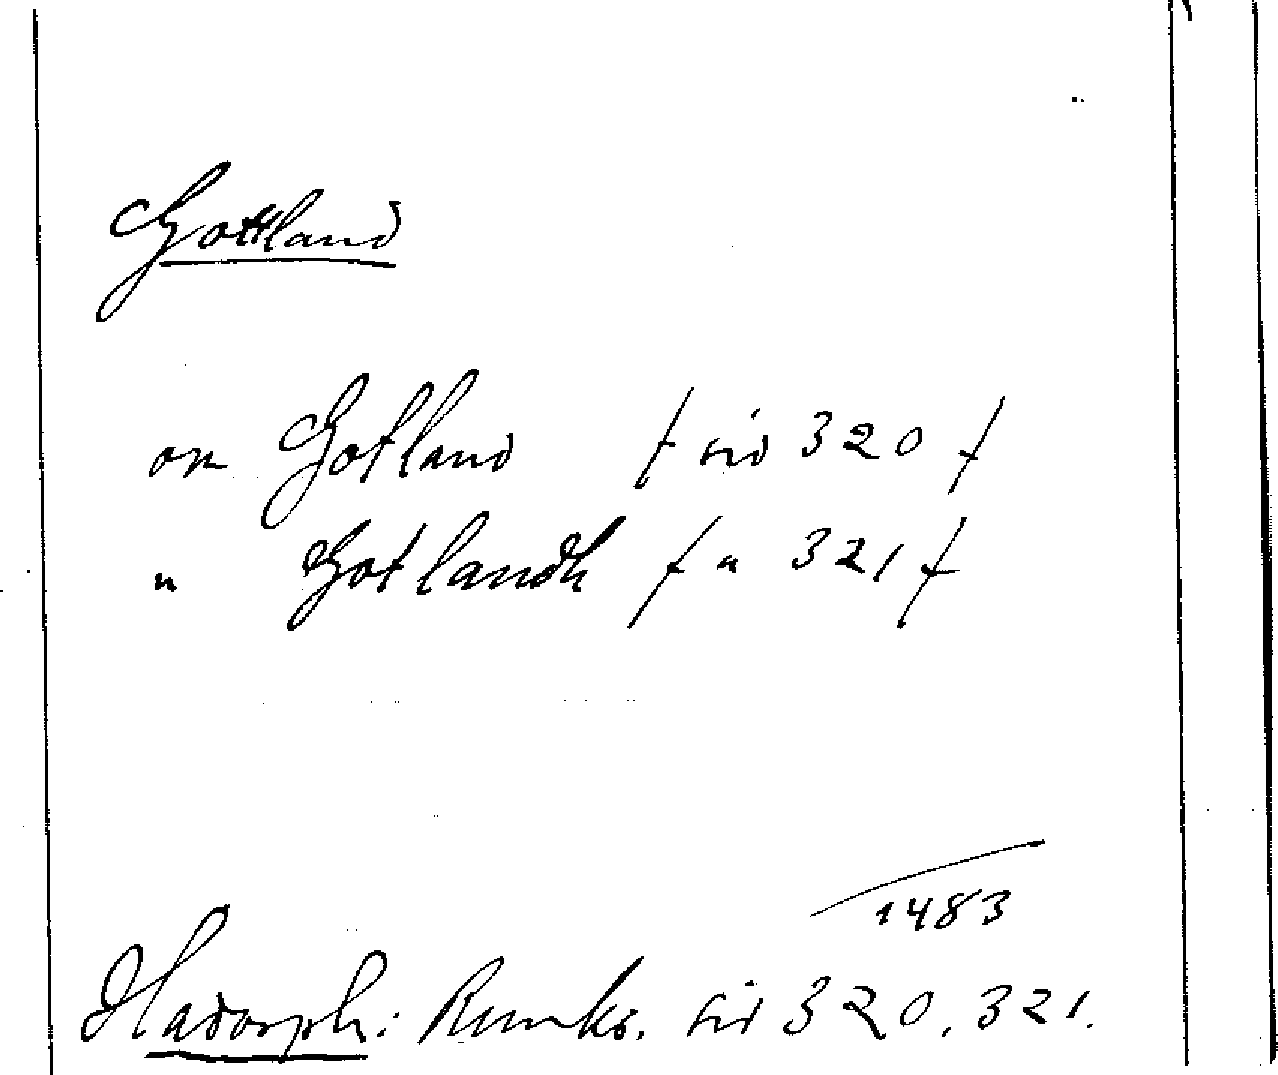 Gottland
on Gotland / sid 320 /
" Gotlandh / " 321 /
1483
Hadorph: Rimkr. sid 320, 321.